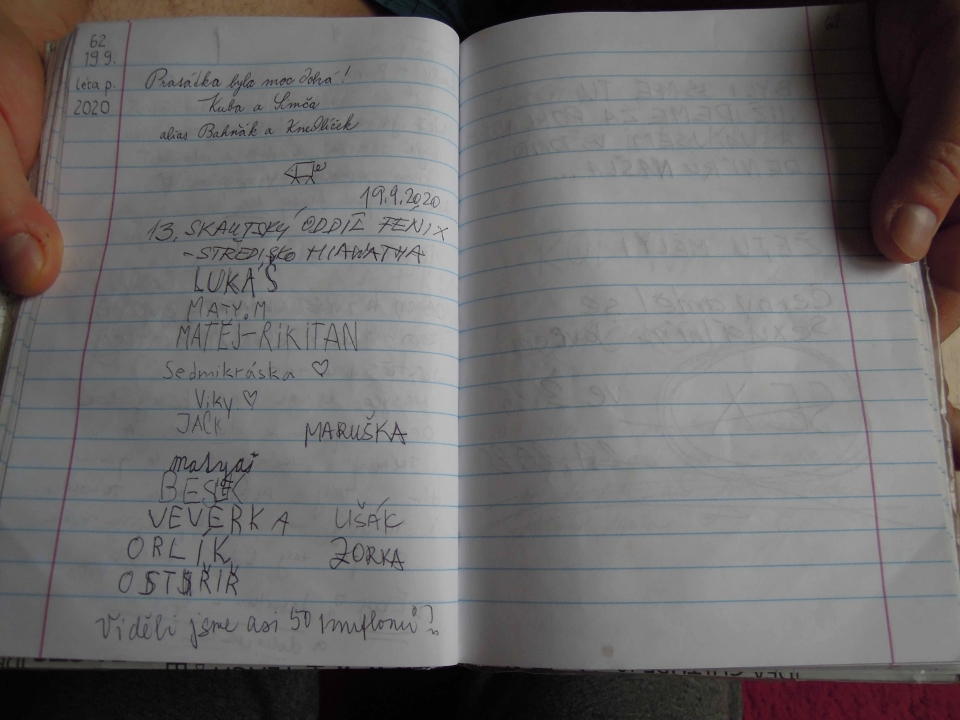 62
19.9.
léta p.
2020
Prasátka byla moc dobrá!
Kuba a Simča
alias Bahňák a Knedlíček
19.9.2020
13. SKAUTSKÝ ODDÍL FÉNIX
- STŘEDISKO HIAWATHA
LUKÁŠ
MATY.M
MATĚJ-RIKITAN
Sedmikráska ♡
Viky ♡
JACK
MARUŠKA
matyaš
VEVERKA UŠÁK
ORLÍK ŽORKA
Viděli jsme asi 50 muflonů!